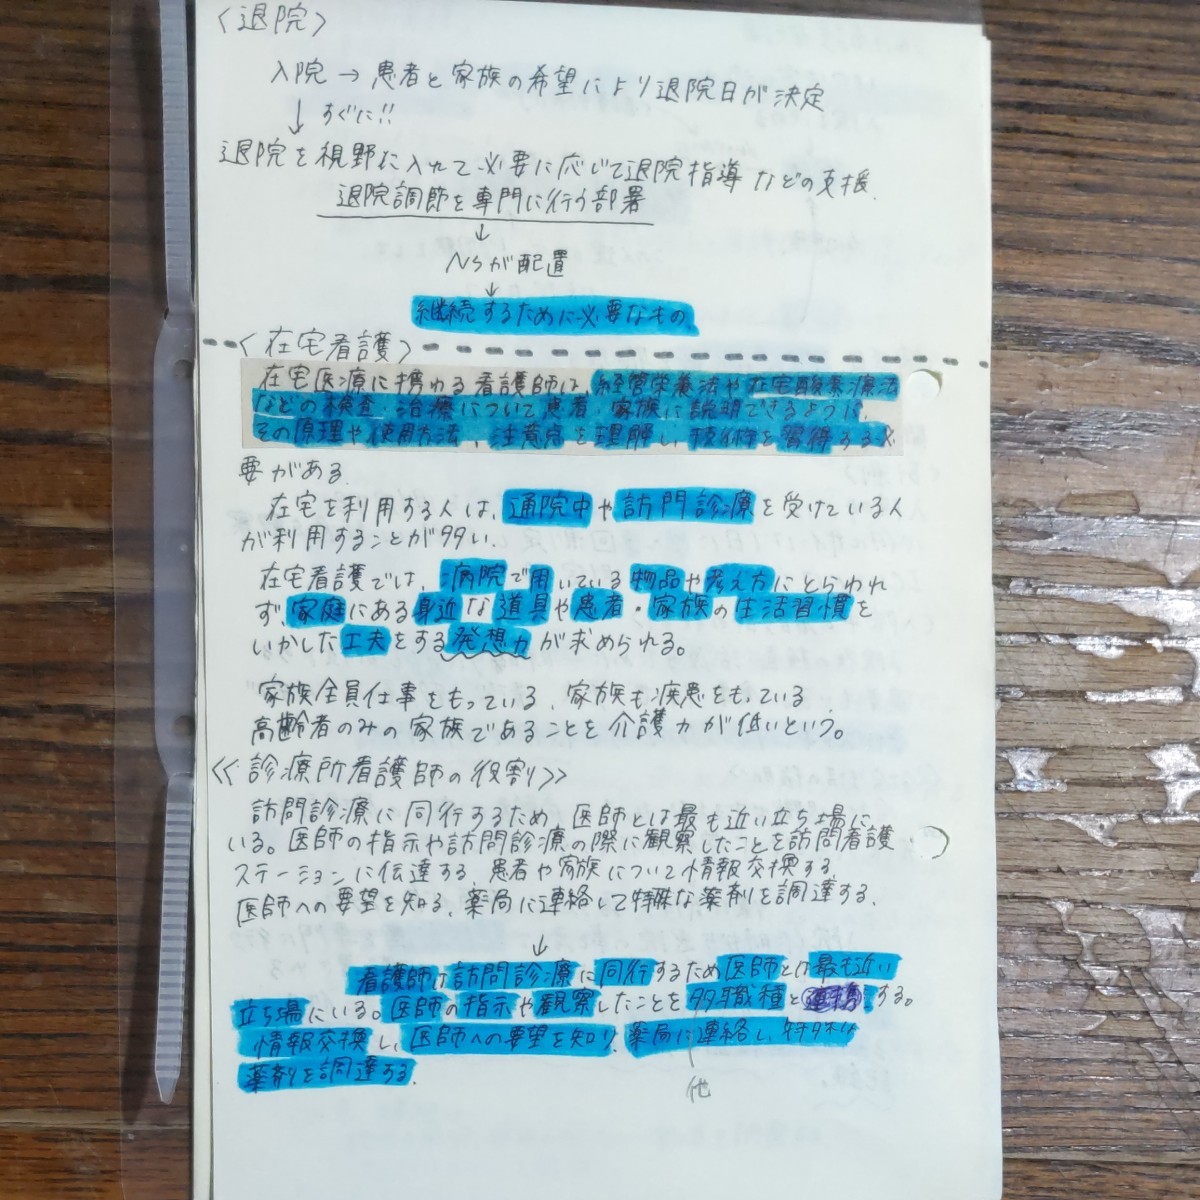 〈退院〉
入院 → 患者と家族の希望により退院日が決定
↓ すぐに!!
退院を視野に入れて必要に応じて退院指導などの支援.
退院調節を専門に行う部署
↓
Nsが配置
↓
継続するために必要なもの.
〈在宅看護〉
在宅医療に携わる看護師は、経管栄養法や在宅酸素療法
などの検査・治療について患者・家族に説明できるように、
その原理や使用方法、注意点を理解し、技術を習得する必
要がある.
在宅を利用する人は、通院中や訪問診療を受けている人
が利用することが多い.
在宅看護では、病院で用いている物品や考え方にとらわれ
ず、家庭にある身近な道具や患者・家族の生活習慣を
いかした工夫をする発想力が求められる。
家族全員仕事をもっている、家族も疾患をもっている、
高齢者のみの家族であることを介護力が低いという。
《診療所看護師の役割》
訪問診療に同行するため、医師とは最も近い立ち場に
いる。医師の指示や訪問診療の際に観察したことを訪問看護
ステーションに伝達する、患者や家族について情報交換する、
医師への要望を知る、薬局に連絡して特殊な薬剤を調達する.
↓
看護師は訪問診療に同行するため医師とは最も近い
立ち場にいる。医師の指示や観察したことを多職種と連携する。
情報交換し、医師への要望を知り、薬局に連絡し、特殊な
薬剤を調達する.
他